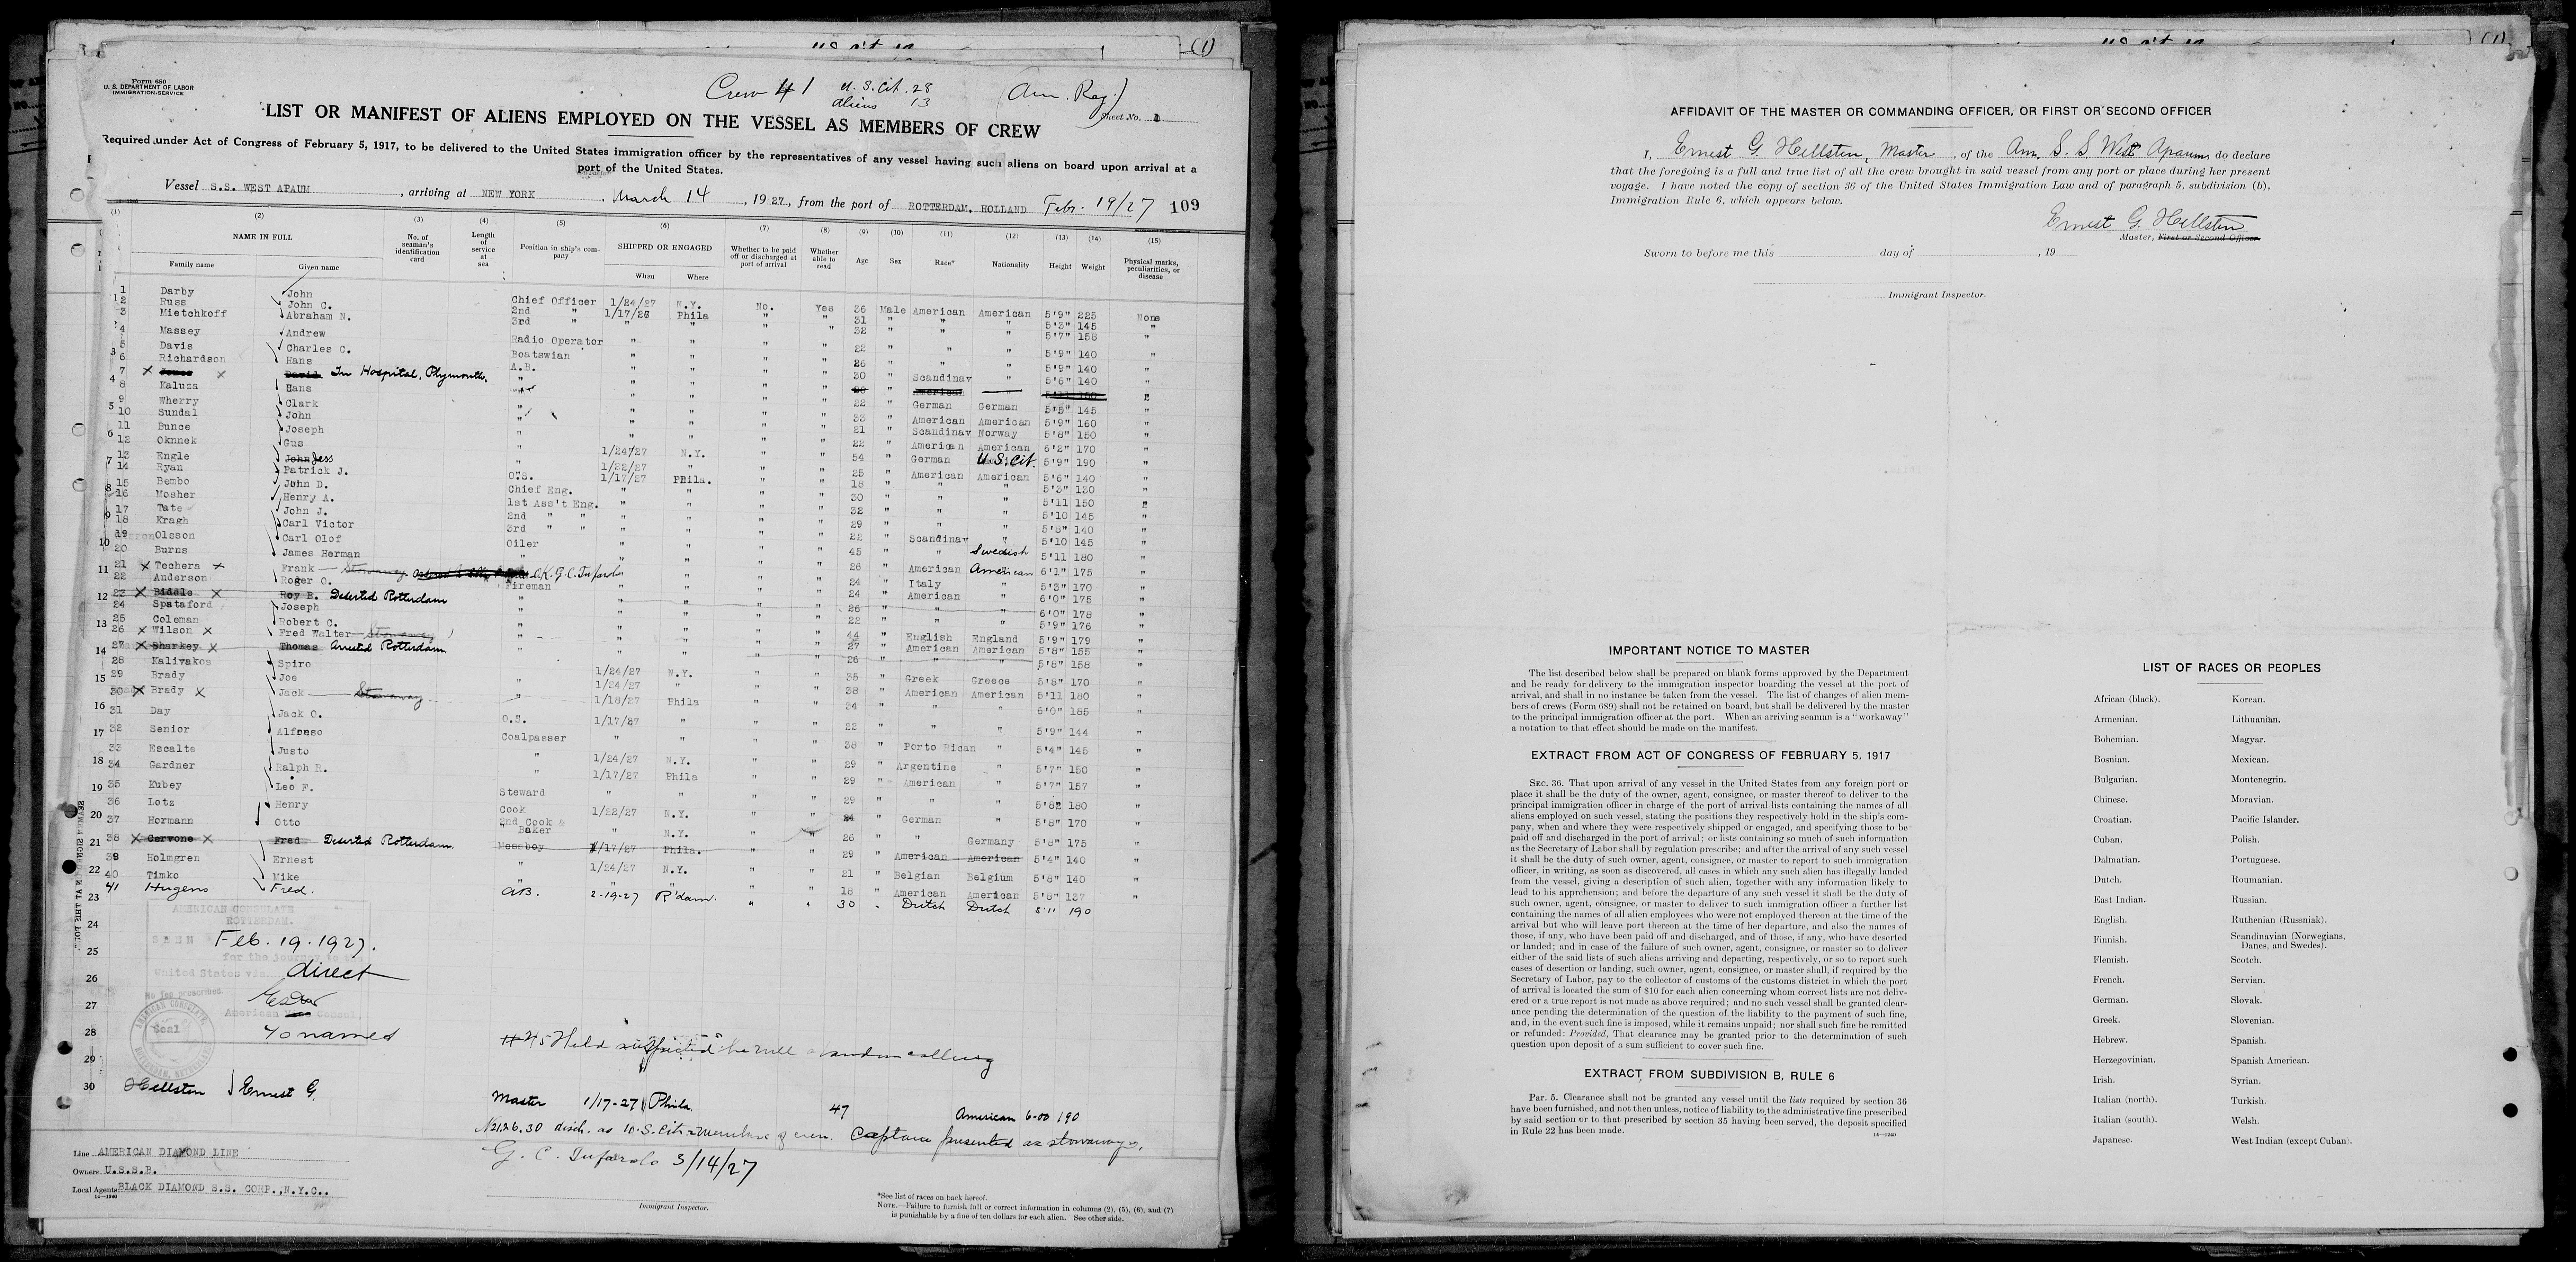 Form 680
U. S. DEPARTMENT OF LABOR
IMMIGRATION SERVICE
Crew 41 U.S. Cit. 28
Aliens 13
(Am. Reg.)
Sheet No. 1
LIST OR MANIFEST OF ALIENS EMPLOYED ON THE VESSEL AS MEMBERS OF CREW
Required under Act of Congress of February 5, 1917, to be delivered to the United States immigration officer by the representatives of any vessel having such aliens on board upon arrival at a
port of the United States.
Vessel S.S. WEST APAUM, arriving at NEW YORK, March 14, 1927, from the port of ROTTERDAM, HOLLAND Febr. 19/27 109
(1) (2) (3) (4) (5) (6) (7) (8) (9) (10) (11) (12) (13) (14) (15)
NAME IN FULL
Family name Given name
No. of seaman's identification card
Length of service at sea
Position in ship's company
SHIPPED OR ENGAGED
When Where
Whether to be paid off or discharged at port of arrival
Whether able to read
Age Sex Race* Nationality Height Weight
Physical marks, peculiarities, or disease
1 Darby John Chief Officer 1/24/27 N.Y. No. Yes 36 Male American American 5'9" 225 None
2 Russ John C. 2nd " 1/17/26 Phila " " 31 " " " 5'3" 145 "
3 Mietchkoff Abraham N. 3rd " " " " " 32 " " " 5'7" 158 "
4 Massey Andrew Radio Operator " " " " 22 " " " 5'9" 140 "
5 Davis Charles C. Boatswian " " " " 26 " " " 5'9" 140 "
6 Richardson Hans A.B. " " " " 30 " Scandinav " 5'6" 140 "
7 X Jones X David In Hospital, Plymouth. " " " " " American
8 Kaluza Hans " " " " " 22 " German German 5'5" 145 "
9 Wherry Clark " " " " " 33 " American American 5'9" 160 "
10 Sundal John " " " " " 21 " Scandinav Norway 5'8" 150 "
11 Bunce Joseph " " " " " 22 " American American 6'2" 170 "
12 Oknnek Gus " 1/24/27 N.Y. " " 54 " German U.S. Cit. 5'9" 190 "
13 Engle John Jess " 1/22/27 " " " 25 " American American 5'6" 140 "
14 Ryan Patrick J. O.S. 1/17/27 Phila. " " 18 " " " 5'3" 130 "
15 Bembo John D. Chief Eng. " " " " 30 " " " 5'11 150 "
16 Mosher Henry A. 1st Ass't Eng. " " " " 32 " " " 5'10 145 "
17 Tate John J. 2nd " " " " " " 29 " " " 5'8" 140 "
18 Kragh Carl Victor 3rd " " " " " " 22 " Scandinav " 5'10 145 "
19 Olsson Carl Olof Oiler " " " " 45 " " Swedish 5'11 180 "
20 Burns James Herman " " " " " 26 " American American 6'1" 175 "
21 X Techera X Frank Stowaway O.K. G.C. Tufarolo " " " 24 " Italy " 5'3" 170 "
22 Anderson Roger O. Fireman " " " " 24 " American " 6'0" 175 "
23 X Biddle X Roy B. Deserted Rotterdam " " " " " 26 " " " 6'0" 178 "
24 Spataford Joseph " " " " " 22 " " " 5'9" 176 "
25 Coleman Robert C. " " " " " 44 " English England 5'9" 179 "
26 X Wilson X Fred Walter Stowaway " " " " " 27 " American American 5'8" 155 "
27 X Sharkey X Thomas Arrested Rotterdam " " " " " 26 " " " 5'8" 158 "
28 Kalivakos Spiro " 1/24/27 N.Y. " " 35 " Greek Greece 5'8" 170 "
29 Brady Joe " 1/24/27 " " " 38 " American American 5'11 180 "
30 X Brady X Jack Stowaway " 1/18/27 Phila " " 34 " " " 6'0" 185 "
31 Day Jack O. O.S. 1/17/27 " " " 22 " " " 5'9" 144 "
32 Senior Alfonso Coalpasser " " " " 38 " Porto Rican " 5'4" 145 "
33 Escalte Justo " 1/24/27 N.Y. " " 29 " Argentine " 5'7" 150 "
34 Gardner Ralph R. " 1/17/27 Phila " " 29 " American " 5'7" 157 "
35 Eubey Leo F. Steward " " " " 29 " " " 5'8½ 180 "
36 Lotz Henry Cook 1/22/27 N.Y. " " " German " 5'8" 170 "
37 Hormann Otto 2nd Cook & Baker " N.Y. " " 26 " " Germany 5'8" 175 "
38 X Cervone X Fred Deserted Rotterdam Messboy 1/17/27 Phila. " " 29 " American American 5'4" 140 "
39 Holmgren Ernest " 1/24/27 N.Y. " " 21 " Belgian Belgium 5'8" 140 "
40 Timko Mike " " " " " 18 " American American 5'8" 137 "
41 Hugens Fred. AB. 2-19-27 R'dam. " " 30 " Dutch Dutch 5'11 190
AMERICAN CONSULATE
ROTTERDAM.
SEEN Feb. 19. 1927.
for the journey to the
United States via direct
No fee prescribed.
American Consul
Seal
40 named
Held suspected he will abandon calling
30 Hellsten Ernest G. Master 1/17-27 Phila. 47 American 6-00 190
N 21.26.30 disch. as U.S. Cit. members of crew. Captain presented as stowaways.
G. C. Tufarolo 3/14/27
Line AMERICAN DIAMOND LINE
Owners U.S.S.B.
Local Agents BLACK DIAMOND S.S. CORP., N.Y.C..
14—1240
Immigrant Inspector.
*See list of races on back hereof.
NOTE.—Failure to furnish full or correct information in columns (2), (5), (6), and (7)
is punishable by a fine of ten dollars for each alien. See other side.
AFFIDAVIT OF THE MASTER OR COMMANDING OFFICER, OR FIRST OR SECOND OFFICER
I, Ernest G. Hellsten, Master, of the Am. S. S. West Apaum, do declare
that the foregoing is a full and true list of all the crew brought in said vessel from any port or place during her present
voyage. I have noted the copy of section 36 of the United States Immigration Law and of paragraph 5, subdivision (b),
Immigration Rule 6, which appears below.
Ernest G. Hellsten
Master, First or Second Officer.
Sworn to before me this day of , 19
Immigrant Inspector.
IMPORTANT NOTICE TO MASTER
The list described below shall be prepared on blank forms approved by the Department
and be ready for delivery to the immigration inspector boarding the vessel at the port of
arrival, and shall in no instance be taken from the vessel. The list of changes of alien mem-
bers of crews (Form 689) shall not be retained on board, but shall be delivered by the master
to the principal immigration officer at the port. When an arriving seaman is a "workaway"
a notation to that effect should be made on the manifest.
EXTRACT FROM ACT OF CONGRESS OF FEBRUARY 5, 1917
SEC. 36. That upon arrival of any vessel in the United States from any foreign port or
place it shall be the duty of the owner, agent, consignee, or master thereof to deliver to the
principal immigration officer in charge of the port of arrival lists containing the names of all
aliens employed on such vessel, stating the positions they respectively hold in the ship's com-
pany, when and where they were respectively shipped or engaged, and specifying those to be
paid off and discharged in the port of arrival; or lists containing so much of such information
as the Secretary of Labor shall by regulation prescribe; and after the arrival of any such vessel
it shall be the duty of such owner, agent, consignee, or master to report to such immigration
officer, in writing, as soon as discovered, all cases in which any such alien has illegally landed
from the vessel, giving a description of such alien, together with any information likely to
lead to his apprehension; and before the departure of any such vessel it shall be the duty of
such owner, agent, consignee, or master to deliver to such immigration officer a further list
containing the names of all alien employees who were not employed thereon at the time of the
arrival but who will leave port thereon at the time of her departure, and also the names of
those, if any, who have been paid off and discharged, and of those, if any, who have deserted
or landed; and in case of the failure of such owner, agent, consignee, or master so to deliver
either of the said lists of such aliens arriving and departing, respectively, or so to report such
cases of desertion or landing, such owner, agent, consignee, or master shall, if required by the
Secretary of Labor, pay to the collector of customs of the customs district in which the port
of arrival is located the sum of $10 for each alien concerning whom correct lists are not deliv-
ered or a true report is not made as above required; and no such vessel shall be granted clear-
ance pending the determination of the question of the liability to the payment of such fine,
and, in the event such fine is imposed, while it remains unpaid; nor shall such fine be remitted
or refunded: Provided, That clearance may be granted prior to the determination of such
question upon deposit of a sum sufficient to cover such fine.
EXTRACT FROM SUBDIVISION B, RULE 6
Par. 5. Clearance shall not be granted any vessel until the lists required by section 36
have been furnished, and not then unless, notice of liability to the administrative fine prescribed
by said section or to that prescribed by section 35 having been served, the deposit specified
in Rule 22 has been made.
14—1240
LIST OF RACES OR PEOPLES
African (black). Korean.
Armenian. Lithuanian.
Bohemian. Magyar.
Bosnian. Mexican.
Bulgarian. Montenegrin.
Chinese. Moravian.
Croatian. Pacific Islander.
Cuban. Polish.
Dalmatian. Portuguese.
Dutch. Roumanian.
East Indian. Russian.
English. Ruthenian (Russniak).
Finnish. Scandinavian (Norwegians, Danes, and Swedes).
Flemish. Scotch.
French. Servian.
German. Slovak.
Greek. Slovenian.
Hebrew. Spanish.
Herzegovinian. Spanish American.
Irish. Syrian.
Italian (north). Turkish.
Italian (south). Welsh.
Japanese. West Indian (except Cuban).